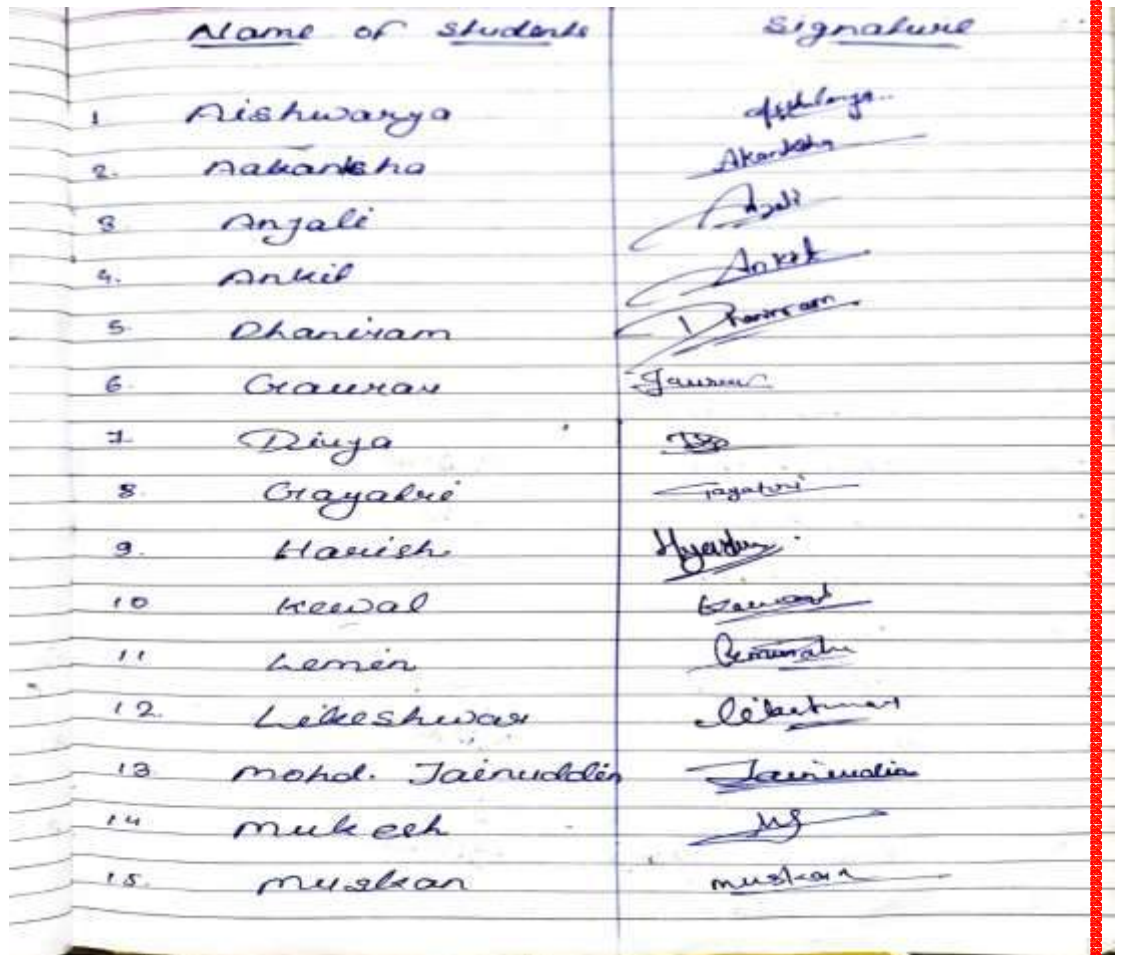 Name of Students Signature
1 Aishwarya
2. Aakanksha Akanksha
3 Anjali Anjali
4. Ankit Ankit
5. Dhaniram Dhaniram
6. Gaurav Gaurav
7. Divya
8. Gayatri Gayatri
9. Harish
10 Keewal
11 Lemin
12. Likeshwar Likeshwar
13 Mohd. Jainuddin Jainuddin
14 Mukesh
15. Muskan Muskan